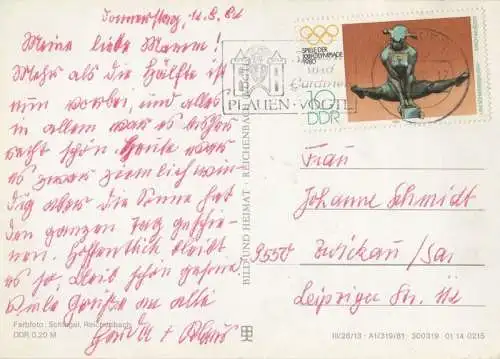 Donnerstag,
Meine liebe
Mehr als die Hälfte ist
nun vorbei, und alles
in allem war es bisher
recht schön. Heute war
es zwar ziemlich win-
dig aber die Sonne hat
den ganzen Tag geschie-
nen. Hoffentlich bleibt
es so, bleib schön gesund.
Viele Grüße an alle
Farbfoto: Schlegel, Reichenbach
DDR 0,20 M
BILD UND HEIMAT · REICHENBACH
PLAUEN · VOGTL
und
Gardinen
SPIELE DER
XXII. OLYMPIADE
1980
DDR
Frau
Johanne Schmidt
9550 Zwickau / Sa.
Leipziger Str.
III/26/13 · A1/319/81 300319 01 14 0215